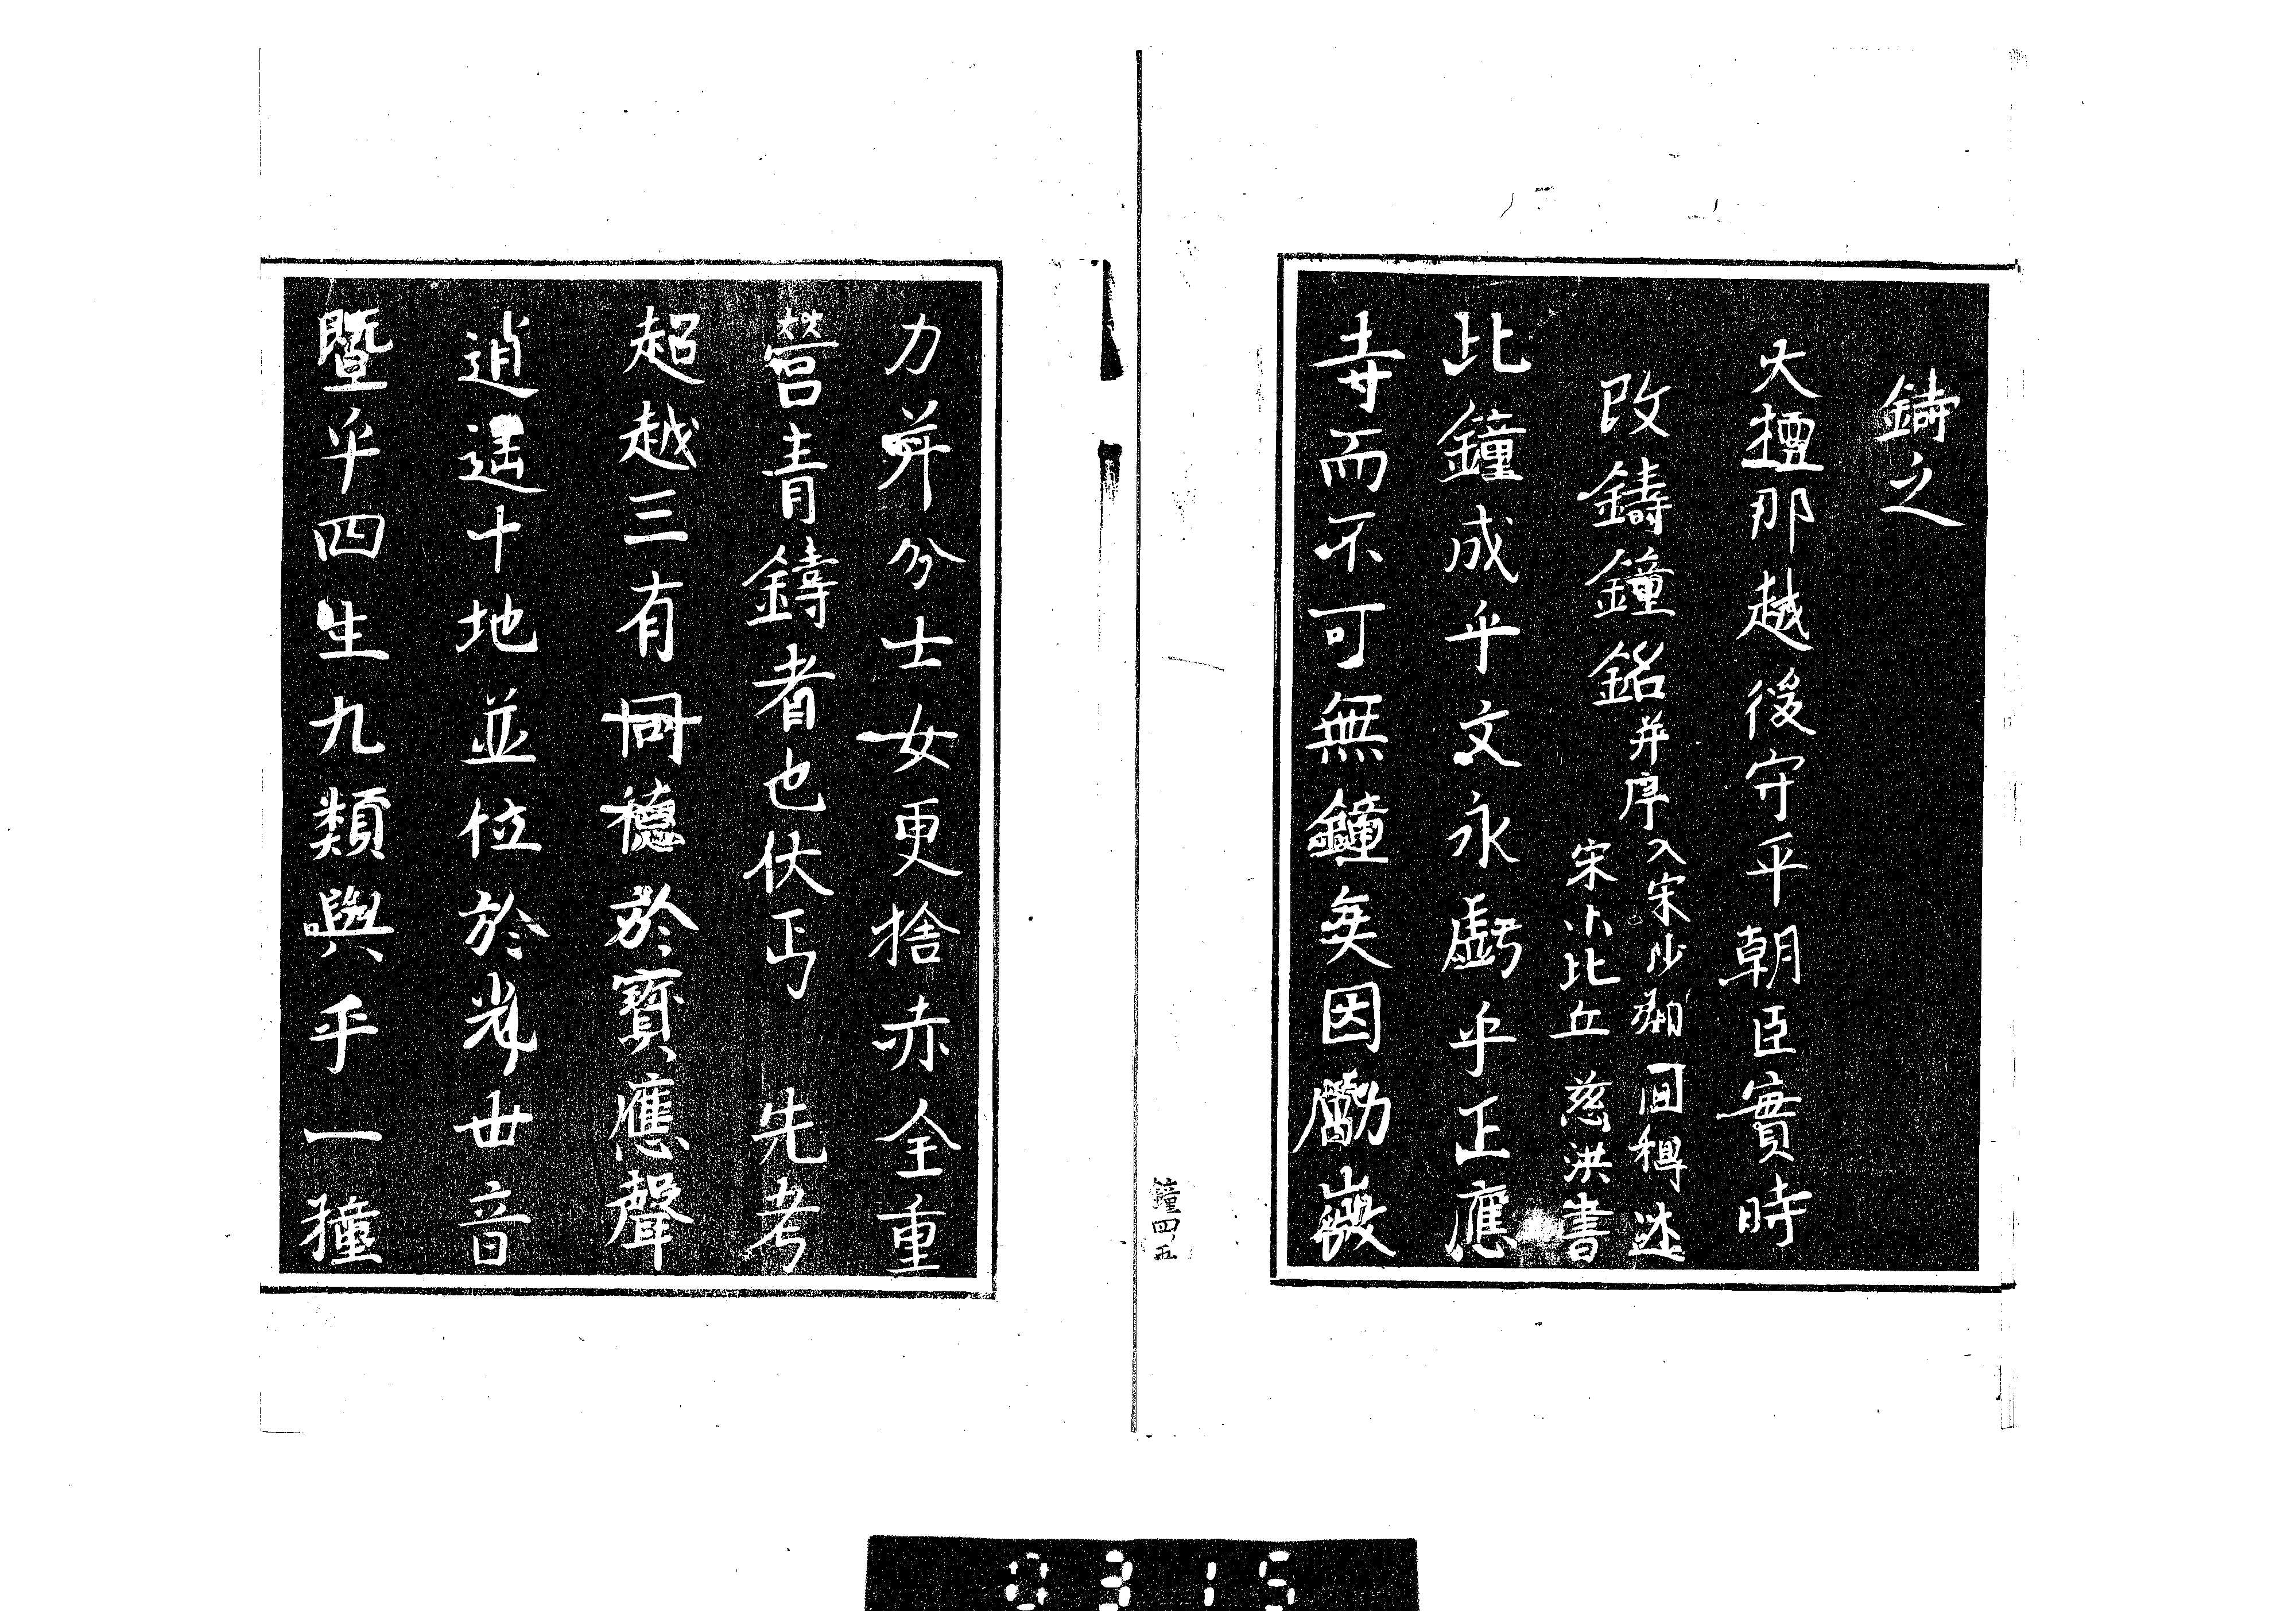 鑄之
大檀那越後守平朝臣實時
改鑄鐘銘并序入宋沙門圓種述
宋小比丘慈洪書
此鐘成乎文永虧乎正應
寺而不可無鐘矣因勵微
力并公士女更捨赤金重
營青鑄者也伏丐 先考
超越三有同德於寶應聲
逍遥十地並位於光世音
暨乎四生九類與乎一種
鐘四ノ五
0315